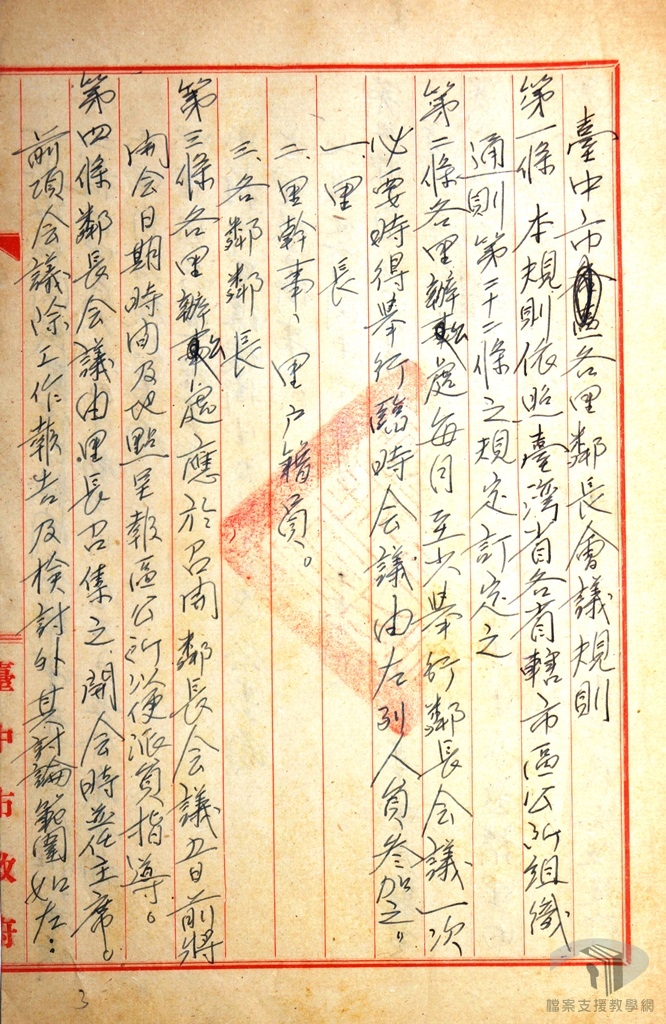 臺中市區各里鄰長會議規則
第一條 本規則依照臺湾省各省轄市區公所組織
通則第二十二條之規定訂定之
第二條各里辦公處每月至少舉行鄰長会議一次
必要時得舉行臨時会議由左列人員參加之。
一、里長
二、里幹事、里戶籍員。
三、各鄰鄰長
第三條各里辦公處應於召開鄰長会議五日前將
開会日期時間及地點呈報區公所以便派員指導。
第四條鄰長会議由里長召集之、開会時並任主席。
前項会議除工作報告及檢討外其討論範圍如左：
臺中市政府
3
檔案支援教學網